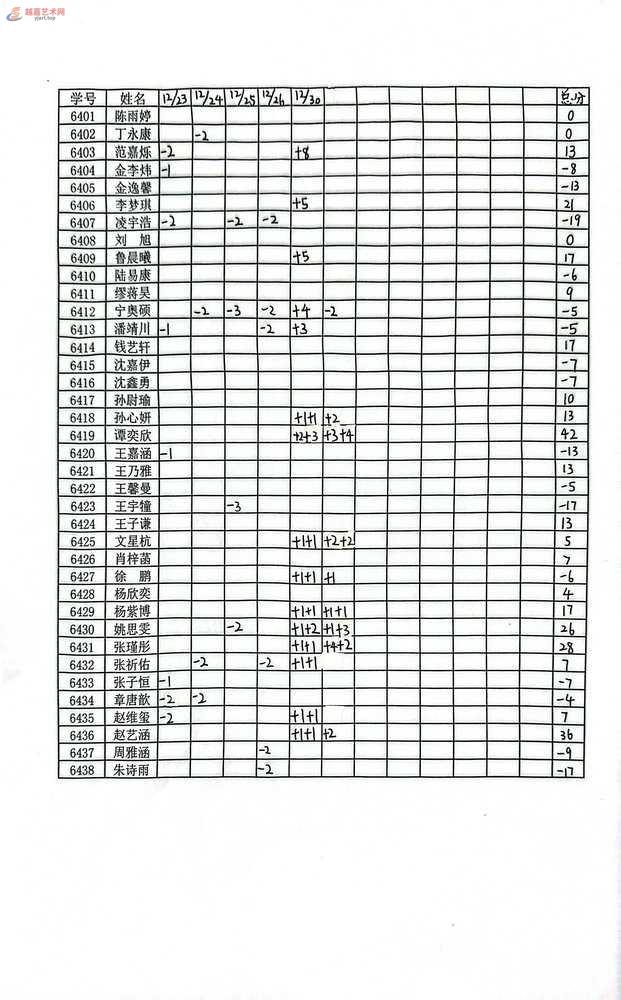 越嘉艺术网
yjart.top
学号 姓名 12/23 12/24 12/25 12/26 12/30 总分
6401 陈雨婷 0
6402 丁永康 -2 0
6403 范嘉烁 -2 +8 13
6404 金李炜 -1 -8
6405 金逸馨 -13
6406 李梦琪 +5 21
6407 凌宇浩 -2 -2 -2 -19
6408 刘 旭 0
6409 鲁晨曦 +5 17
6410 陆易康 -6
6411 缪蒋昊 9
6412 宁奥硕 -2 -3 -2 +4 -2 -5
6413 潘靖川 -1 -2 +3 -5
6414 钱艺轩 17
6415 沈嘉伊 -7
6416 沈鑫勇 -7
6417 孙尉瑜 10
6418 孙心妍 +1+1 +2 13
6419 谭奕欣 +2+3 +3+4 42
6420 王嘉涵 -1 -13
6421 王乃雅 13
6422 王馨曼 -5
6423 王宇犝 -3 -17
6424 王子谦 13
6425 文星杭 +1+1 +2+2 5
6426 肖梓菡 7
6427 徐 鹏 +1+1 +1 -6
6428 杨欣奕 4
6429 杨紫博 +1+1 +1+1 17
6430 姚思雯 -2 +1+2 +1+3 26
6431 张瑾彤 +1+1 +4+2 28
6432 张祈佑 -2 -2 +1+1 7
6433 张子恒 -1 -7
6434 章唐歆 -2 -2 -4
6435 赵维玺 -2 +1+1 7
6436 赵艺涵 +1+1 +2 36
6437 周雅涵 -2 -9
6438 朱诗雨 -2 -17